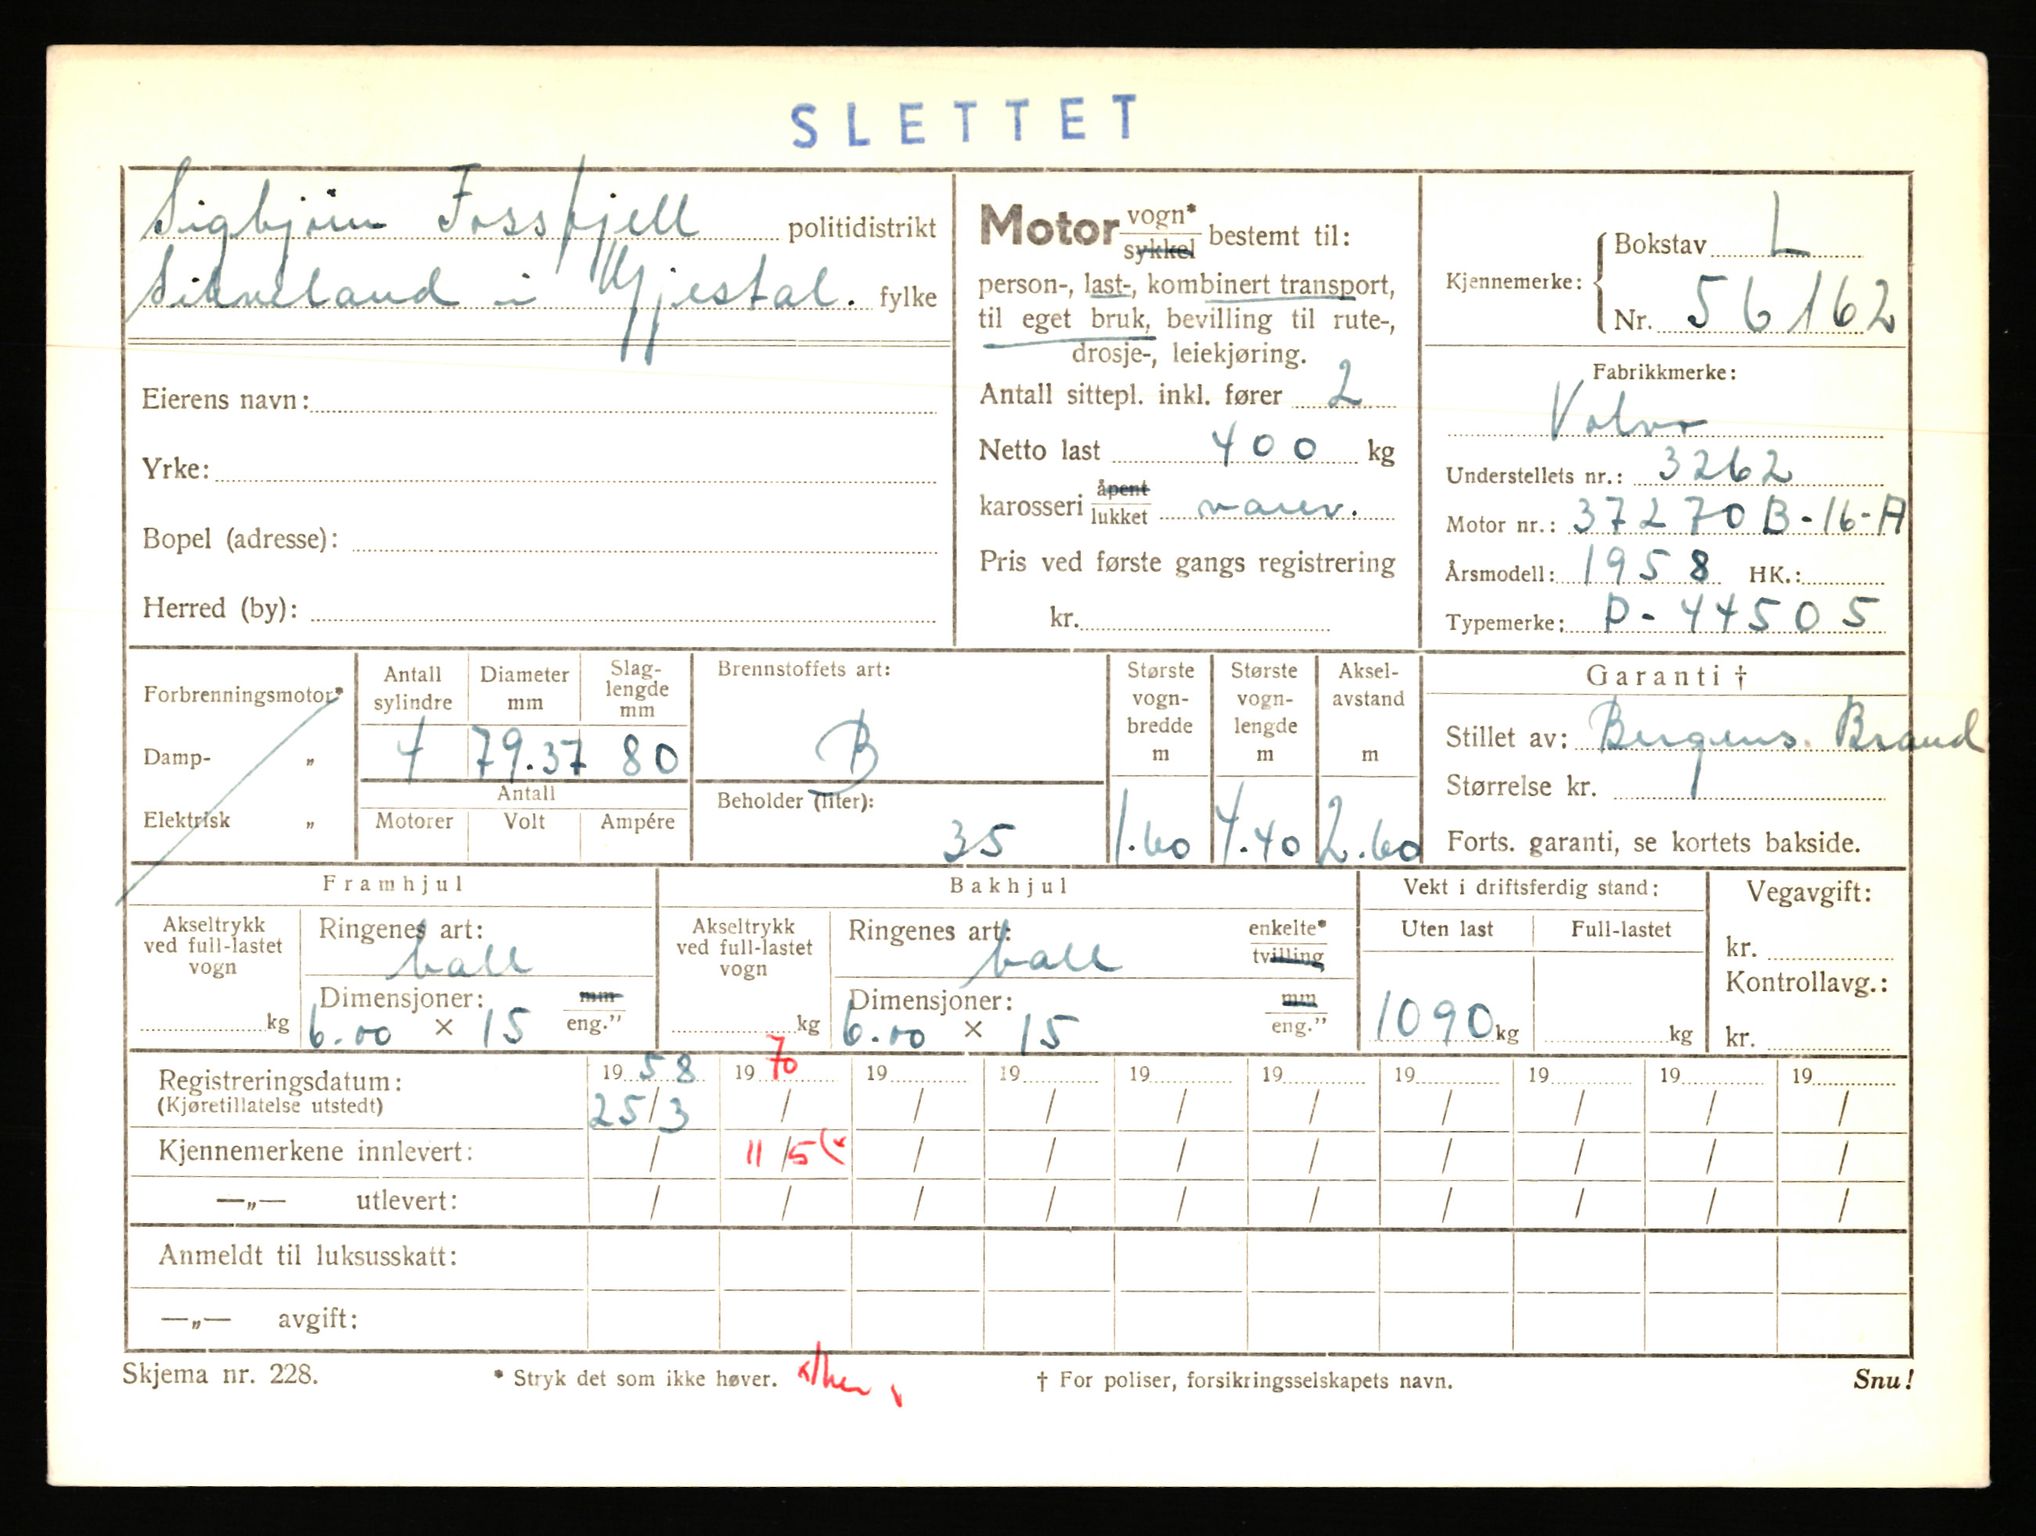 SLETTET
Sigbjörn Fossfjell politidistrikt
Sikveland i Gjestal. fylke
Eierens navn:
Yrke:
Bopel (adresse):
Herred (by):
Motor vogn* sykkel bestemt til:
person-, last-, kombinert transport,
til eget bruk, bevilling til rute-,
drosje-, leiekjøring.
Antall sittepl. inkl. fører 2
Netto last 400 kg
karosseri åpent lukket varev.
Pris ved første gangs registrering
kr.
Kjennemerke: Bokstav L
Nr. 56162
Fabrikkmerke:
Volvo
Understellets nr.: 3262
Motor nr.: 37270 B-16-A
Årsmodell: 1958 HK.:
Typemerke: P-44505
Forbrenningsmotor*
Damp- „
Elektrisk „
Antall sylindre
Diameter mm
Slag-lengde mm
4 79.37 80
Antall
Motorer Volt Ampére
Brennstoffets art:
B
Beholder (liter):
35
Største vogn-bredde m
1.60
Største vogn-lengde m
4.40
Aksel-avstand m
2.60
Garanti †
Stillet av: Bergens Brand
Størrelse kr.
Forts. garanti, se kortets bakside.
Framhjul
Akseltrykk ved full-lastet vogn
kg
Ringenes art:
ball
Dimensjoner: mm eng."
6.00 × 15
Bakhjul
Akseltrykk ved full-lastet vogn
kg
Ringenes art: enkelte* tvilling
ball
Dimensjoner: mm eng."
6.00 × 15
Vekt i driftsferdig stand:
Uten last Full-lastet
1090 kg kg
Vegavgift:
kr.
Kontrollavg.:
kr.
Registreringsdatum: 19 58 19 70 19 19 19 19 19 19 19 19
(Kjøretillatelse utstedt) 25/3 / / / / / / / / /
Kjennemerkene innlevert: / 11/5 / / / / / / / /
—„— utlevert: / / / / / / / / / /
Anmeldt til luksusskatt:
—„— avgift:
Skjema nr. 228.
* Stryk det som ikke høver.
† For poliser, forsikringsselskapets navn.
Snu!